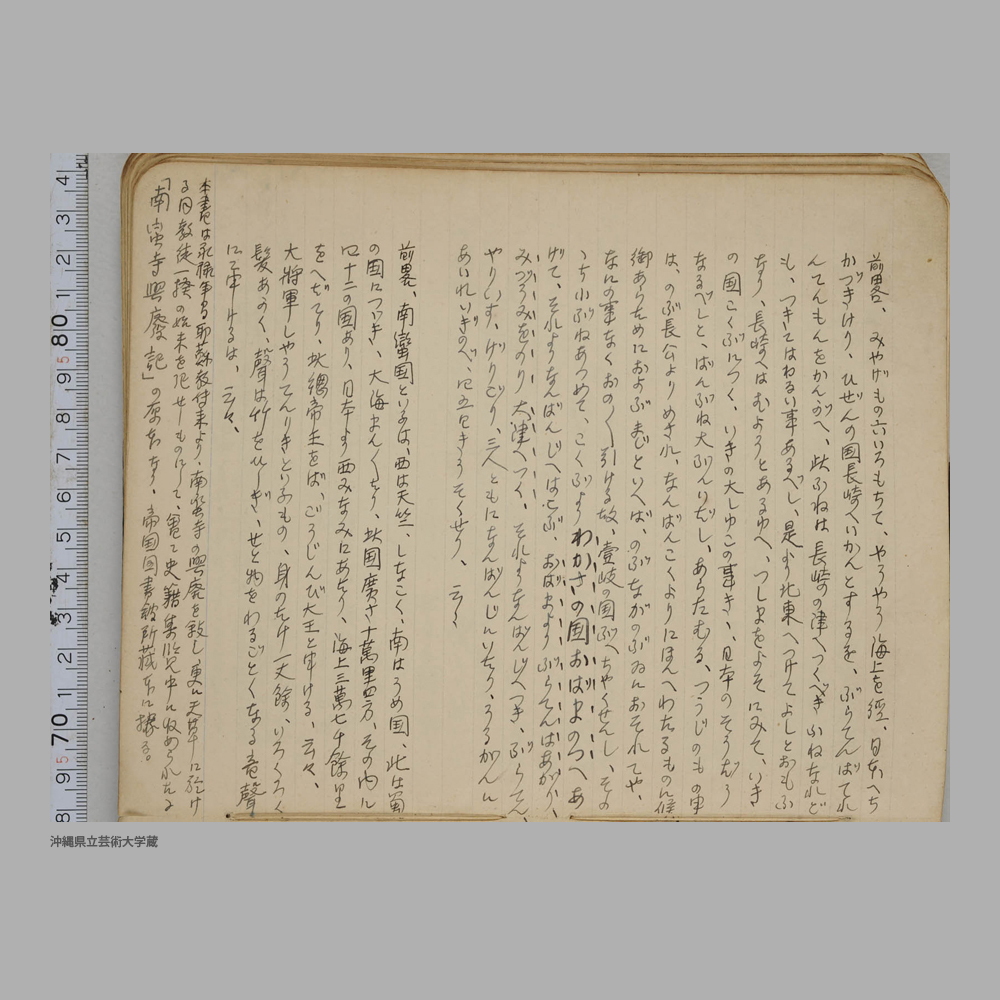 前畧、みやげもの六いろもちて、やうやう海上を經、日本へち
かづきけり、ひぜんの国長崎へいかんとするを、ぶらてんばてれ
んてんもんをかんがへ、此ふねは長崎の津へつくべきふねなれど
も、つきてはわるい事あるべし、是より北東へつけてよしとおもふ
なり、長崎へはむようとあるゆへ、つしまをよそにみて、いき
の国こくぶにつく、いきの大しゆこの事きゝ、日本のそうぢう
なるべしと、ばんぶね大ぶんいだし、あらたむる、つうじのもの申
は、のぶ長公よりめされ、なんばんこくよりにほんへわたるもの候
御あらためにおよぶまじといへば、のぶながのぶゐにおそれてや、
なにの事なくおの〱引ける故、壹岐の国ぶへちやくせんし、その
ゝち小ぶねあつめて、こくぶよりわかさの国おばまのつへあ
げて、それよりなんばんじへはこぶ、おばまよりぶらてんはあがり、
みづうみをのり大津へつく、それよりなんばんじへつき、ぶらてん、
やりいす、げりごり、三人ともになんばんじにいたり、うるがんに
あいれいぎのべ、に五たきうそくせり、云〻
前畧、南蠻国といふは、西は天竺、しなこく、南はうめ国、北は蜀
の国につゞき、大海まん〱たり、此国廣さ十萬里四方、その内に
四十二の国あり、日本より西みなみにあたり、海上三萬七千餘里
をへだてり、此總帝王をば、ごうじんび大王と申ける、云々、
大將軍しやうてんりきといふもの、身のたけ一丈餘、いろくろく
髪あかく、聲は竹をひしぎ、せと物をわるごとくなる音聲
にて申けるは、云々、
本書は永禄年間耶蘇教付来より、南蛮寺の興廃を敍し、更に天草に於け
る同教徒一揆の始末を記せしものにして、曽て史籍集覧中に収められたる
「南蛮寺興廃記」の原本なり、帝国図書館所蔵本に據る。
4 3 2 1 80 9 8 7 6 5 4 3 2 1 70 9 8
5 5
沖縄県立芸術大学蔵